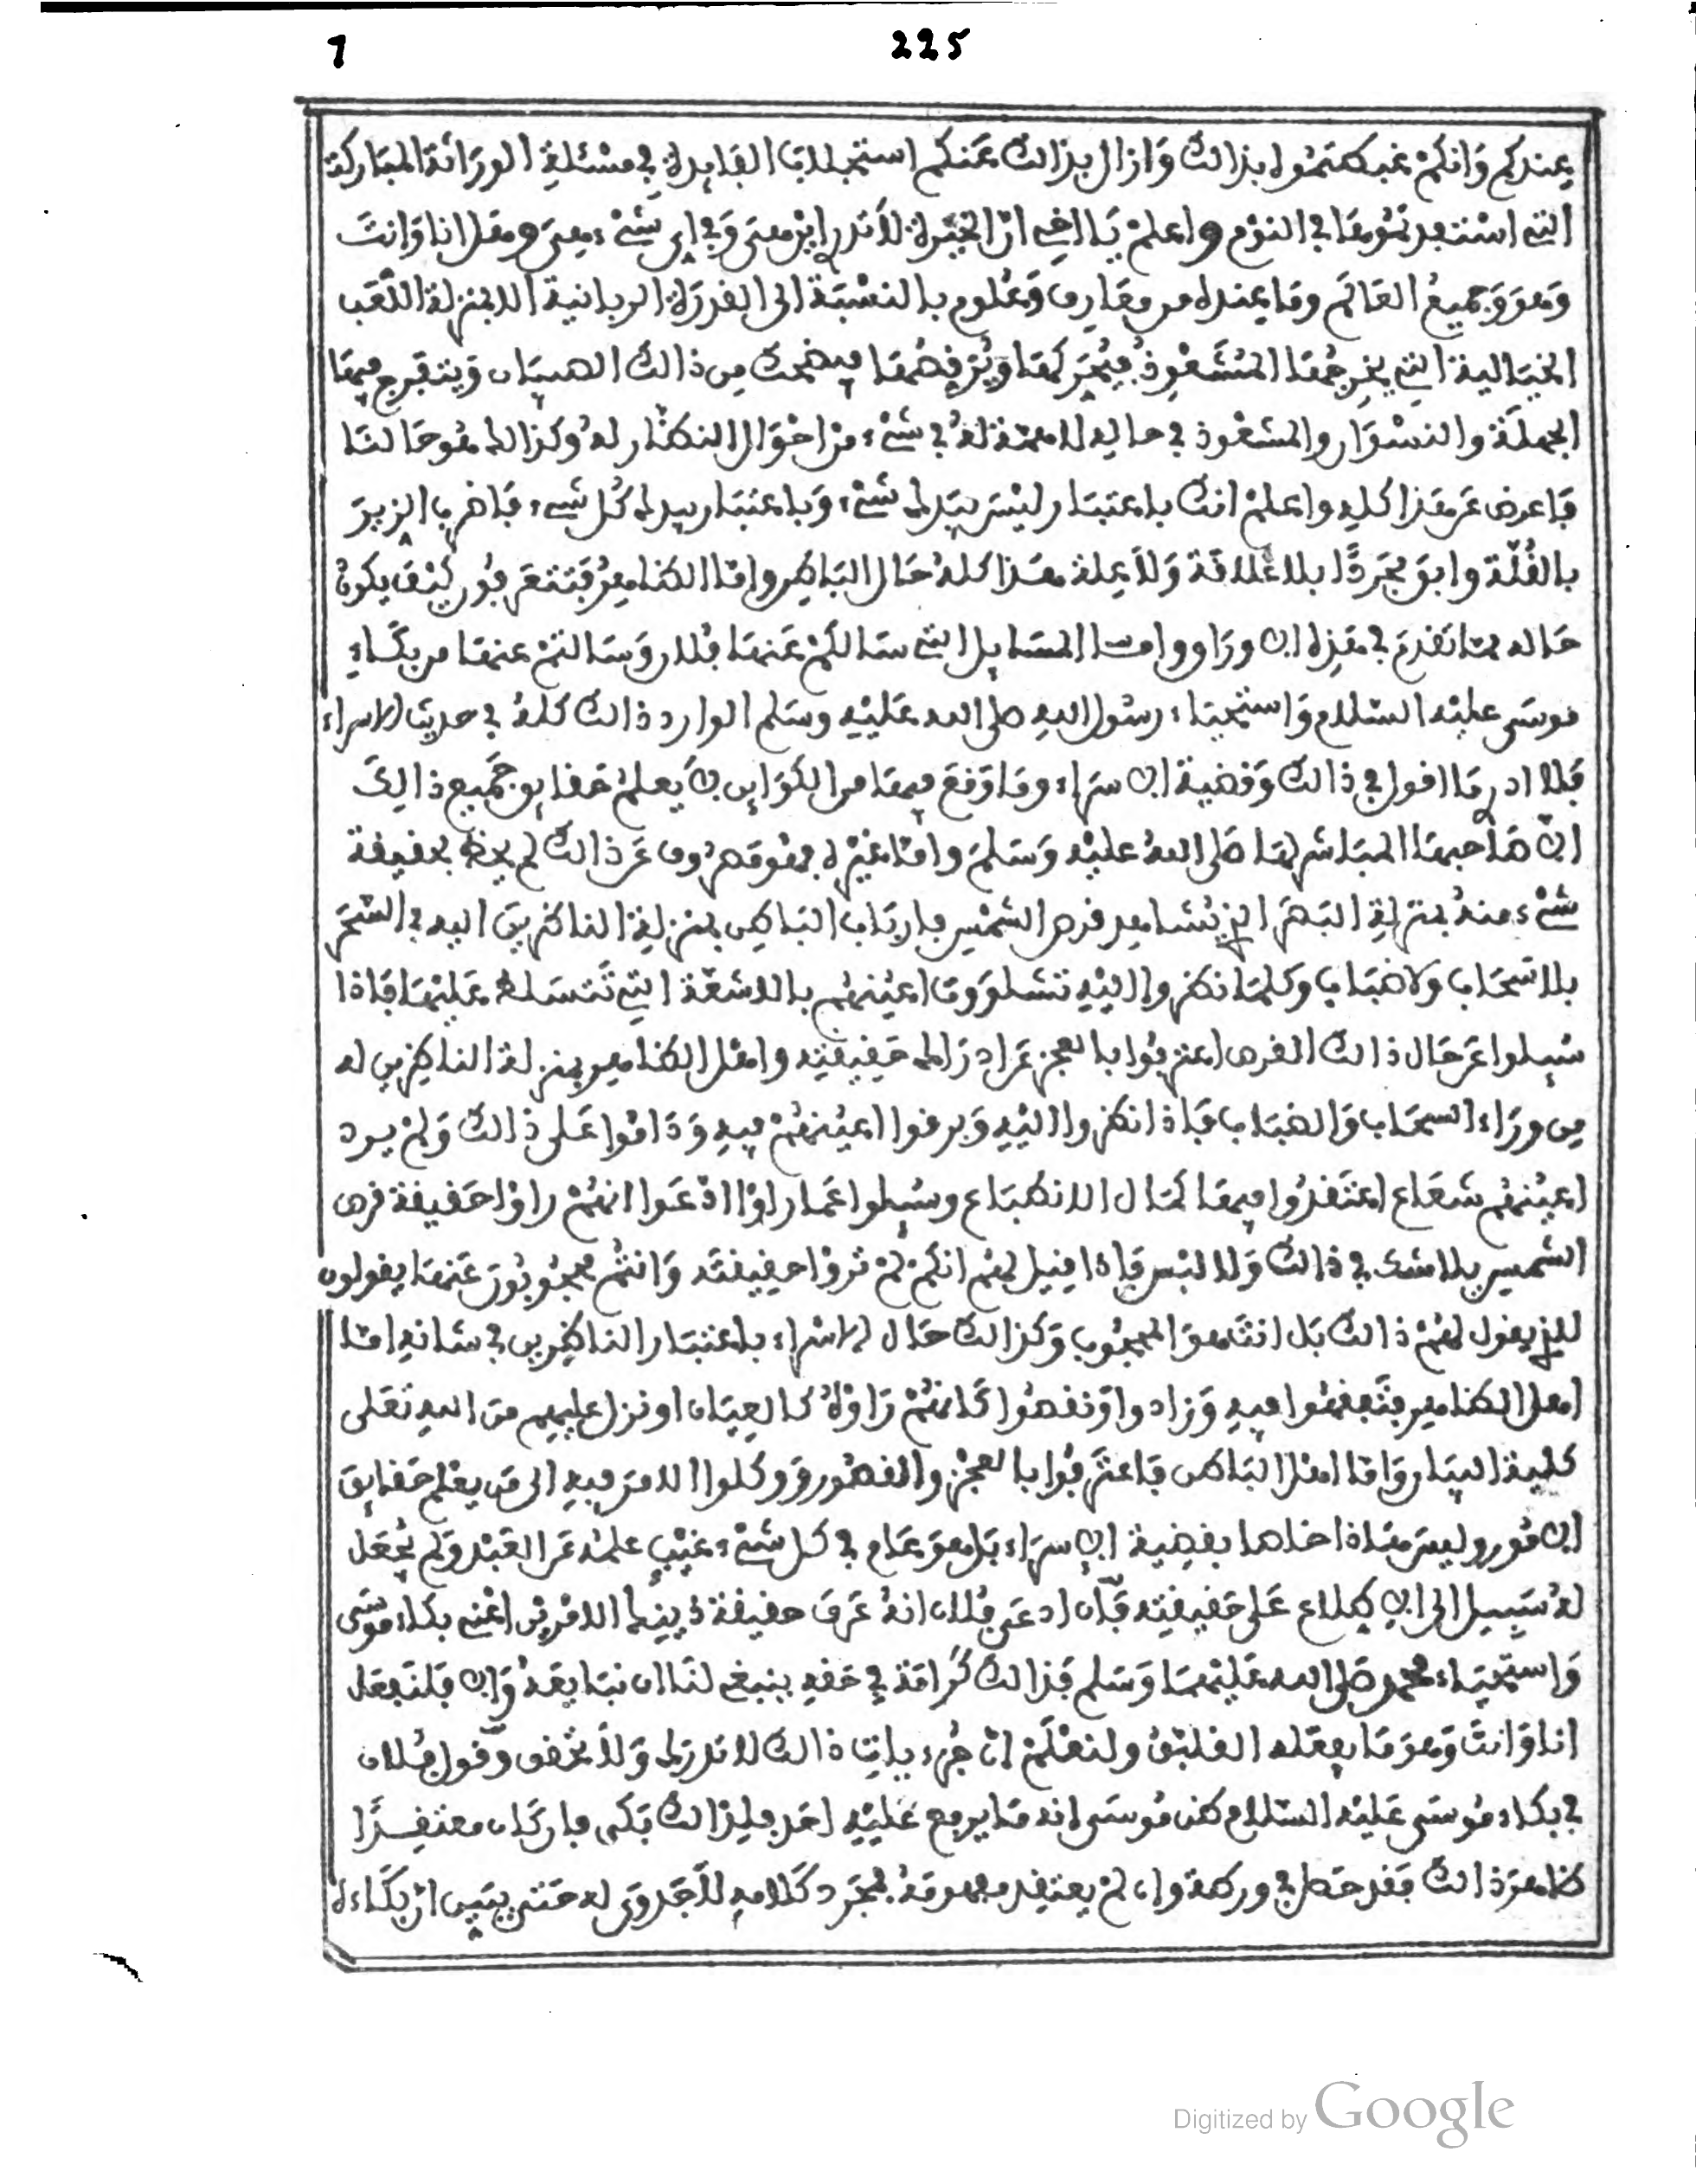 7 225
عندكم وانكم غبطتموه بذالك وازال بذالك عنكم استجلاب الفايدة في مسئلة الوراثة المباركة
التي استبعد نومها في النوم واعلم يا اخي ان الخبرة لا تدري اين هي وفي اي شيء هي وهل انا وانت
وهو وجميع العالم وما عنده من معارف وعلوم بالنسبة الى القدرة الربانية الا بمنزلة اللعب
الخيالية التي يخرجها المشعوذ فيحركها ويرفصها فيضحك من ذالك الصبيان ويتفرج فيها
الجملة والنسوان والمشعوذ في حاله لا همة له في شيء من احوال النظار له وكذالك هو حالنا
فاعرض عن هذا كله واعلم انك باعتبار ليس بيدك شيء وباعتبار بيدك كل شيء فاضرب الزير
بالقلة وابق مجردا بلا علاقة ولا علة هذا كله حال الباطن واما الظاهر فتتعرفون كيف يكون
حاله مما تقدم في هذه الاوراق واما المسايل التي سالكم عنها فلان وسالتم عنها من بكاء
موسى عليه السلام واستحياء رسول الله صلى الله عليه وسلم الوارد ذالك كله في حديث الاسراء
فلا ادري ما اقول في ذالك وقضية الاسراء وما وقع فيها من الكواين لا يعلم حقايق جميع ذالك
الا صاحبها المباشر لها صلى الله عليه وسلم واما غيره فهو مصروف عن ذالك لم يحظ بحقيقة
شيء منه بمنزلة البصر الذي يشاهد قرص الشمس فارباب الباطن بمنزلة الناظرين اليه في السحر
بلا سحاب ولا ضباب وكلما نظروا اليه تشلووت اعينهم بالاشعة التي تتسلط عليها فاذا
سيلوا عن حال ذالك القرص اعترفوا بالعجز عن ادراك حقيقته واهل الظاهر بمنزلة الناظرين له
من وراء السحاب والضباب فاذا نظروا اليه وبرقوا اعينهم فيه وداموا على ذالك ولم يرد
اعينهم شعاع اعتقدوا فيها كمال الانطباع وسيلوا عما راوا ادعوا انهم راوا حقيقة قرص
الشمس بلا شك في ذالك ولا لبس فاذا قيل لهم انكم لم تروا حقيقته وانتم محجوبون عنها يقولون
للذي يقول لهم ذالك بل انت هو المحجوب وكذالك حال الاسراء باعتبار الناظرين في شانه اما
اهل الظاهر فتعمقوا فيه وزادوا ونقصوا كانهم راوه كالعيان او نزل عليهم من الله تعلى
كلية البيان واما اهل الباطن فاعترفوا بالعجز والقصور ووكلوا الامر فيه الى من يعلم حقايق
الامور وليس هذا خاصا بقضية الاسراء بل هو عام في كل شيء غيب علمه عن العبد ولم يجعل
له سبيل الى الاطلاع على حقيقته فان ادعى فلان انه عرف حقيقة ذينك الامرين اعني بكاء موسى
واستحياء محمد صلى الله عليهما وسلم فذالك كرامة في حقه ينبغي لنا ان نتابعه والا فلنفعل
انا وانت وهو ما يفعله الفلبق ولنعلم ان جزءيات ذالك لا تدرك ولا تحقق وقول فلان
في بكاء موسى عليه السلام ظن موسى انه ما يرفع عليه احد فلذالك بكى فان كان معتقدا
ظاهر ذالك فقد حصل في ورطة وان لم يعتقد فهو قد بمجرد كلامه لا جدوى له حتى يبين ان بكاءه
Digitized by Google